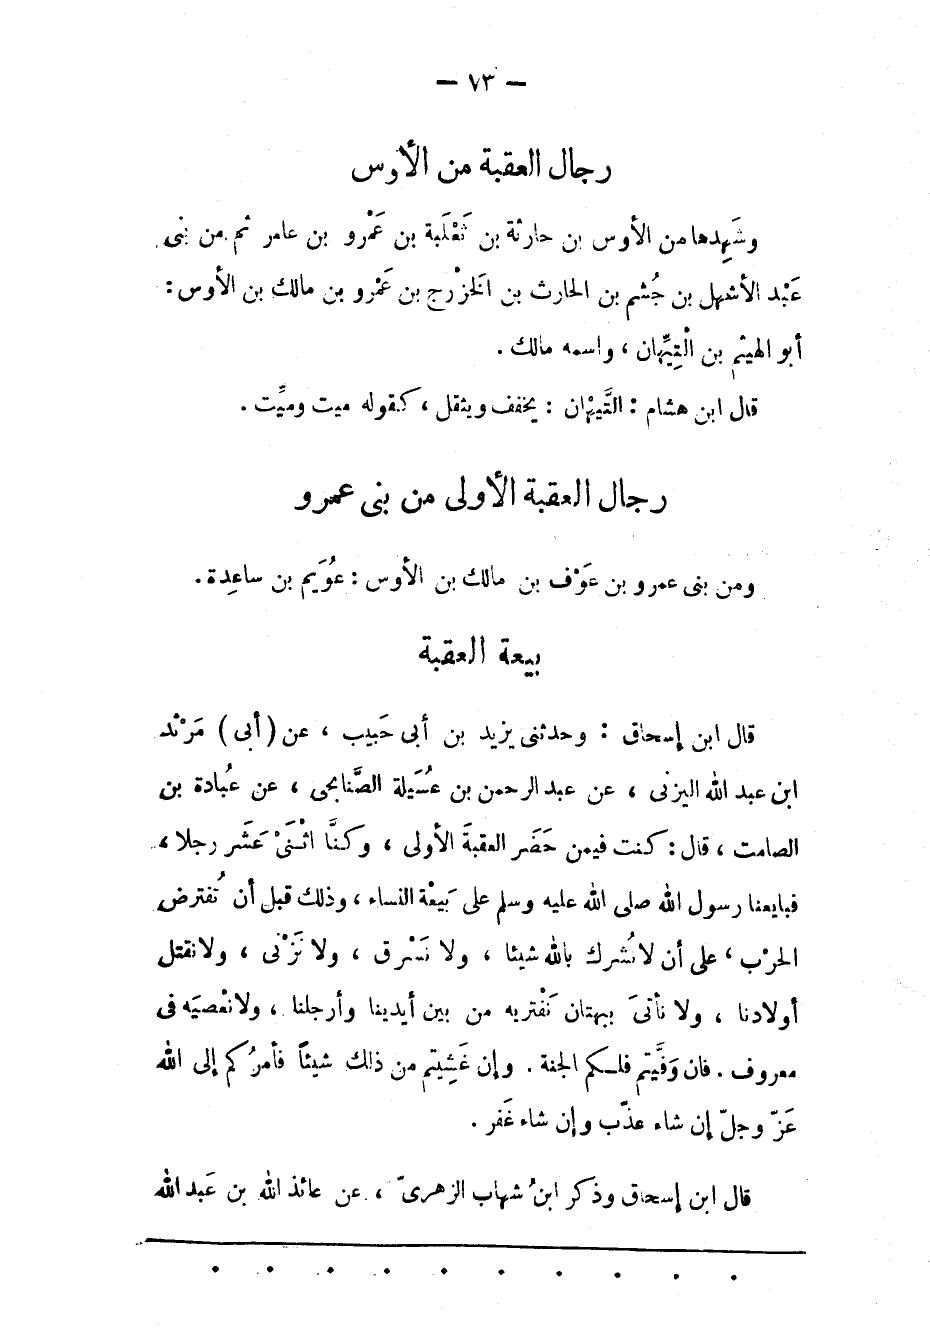 — ٧٣ —
رجال العقبة من الأوس
وشَهِدها من الأوس بن حارثة بن ثَعْلَبة بن عَمْرو بن عامر ثم من بنى
عَبْد الأشهل بن جُشم بن الحارث بن الخَزْرج بن عَمْرو بن مالك بن الأوس :
أبو الهيثم بن التِّيِّهان ، واسمه مالك .
قال ابن هشام : التَّيهْان : يخفف ويثقل ، كقوله ميت وميِّت .
رجال العقبة الأولى من بنى عمرو
ومن بنى عمرو بن عَوْف بن مالك بن الأوس : عُوَيم بن ساعِدة .
بيعة العقبة
قال ابن إسحاق : وحدثنى يزيد بن أبى حَبيب ، عن (أبى) مَرْثد
ابن عبد الله اليزنى ، عن عبد الرحمن بن عُسَيلة الصَّنابحى ، عن عُبادة بن
الصامت ، قال : كنت فيمن حَضَر العقبةَ الأولى ، وكنَّا اثْنَىْ عَشَر رجلا ،
فبايعنا رسول الله صلى الله عليه وسلم على بَيعْة النساء ، وذلك قبل أن تُفترض
الحرْب ، على أن لا نُشرك بالله شيئا ، ولا نَسْرق ، ولا نَزْنى ، ولا نقتل
أولادنا ، ولا نأتىَ ببهتان نَفْتريه من بين أيدينا وأرجلنا ، ولا نعْصيَه فى
معروف . فان وَفَّيتم فلكم الجنة . وإن غَشِيتم من ذلك شيئاً فأمرُكم إلى الله
عَزّ وجلّ إن شاء عذّب وإن شاء غَفَر .
قال ابن إسحاق وذكر ابنُ شهاب الزهرىّ ، عن عائذ الله بن عَبد الله